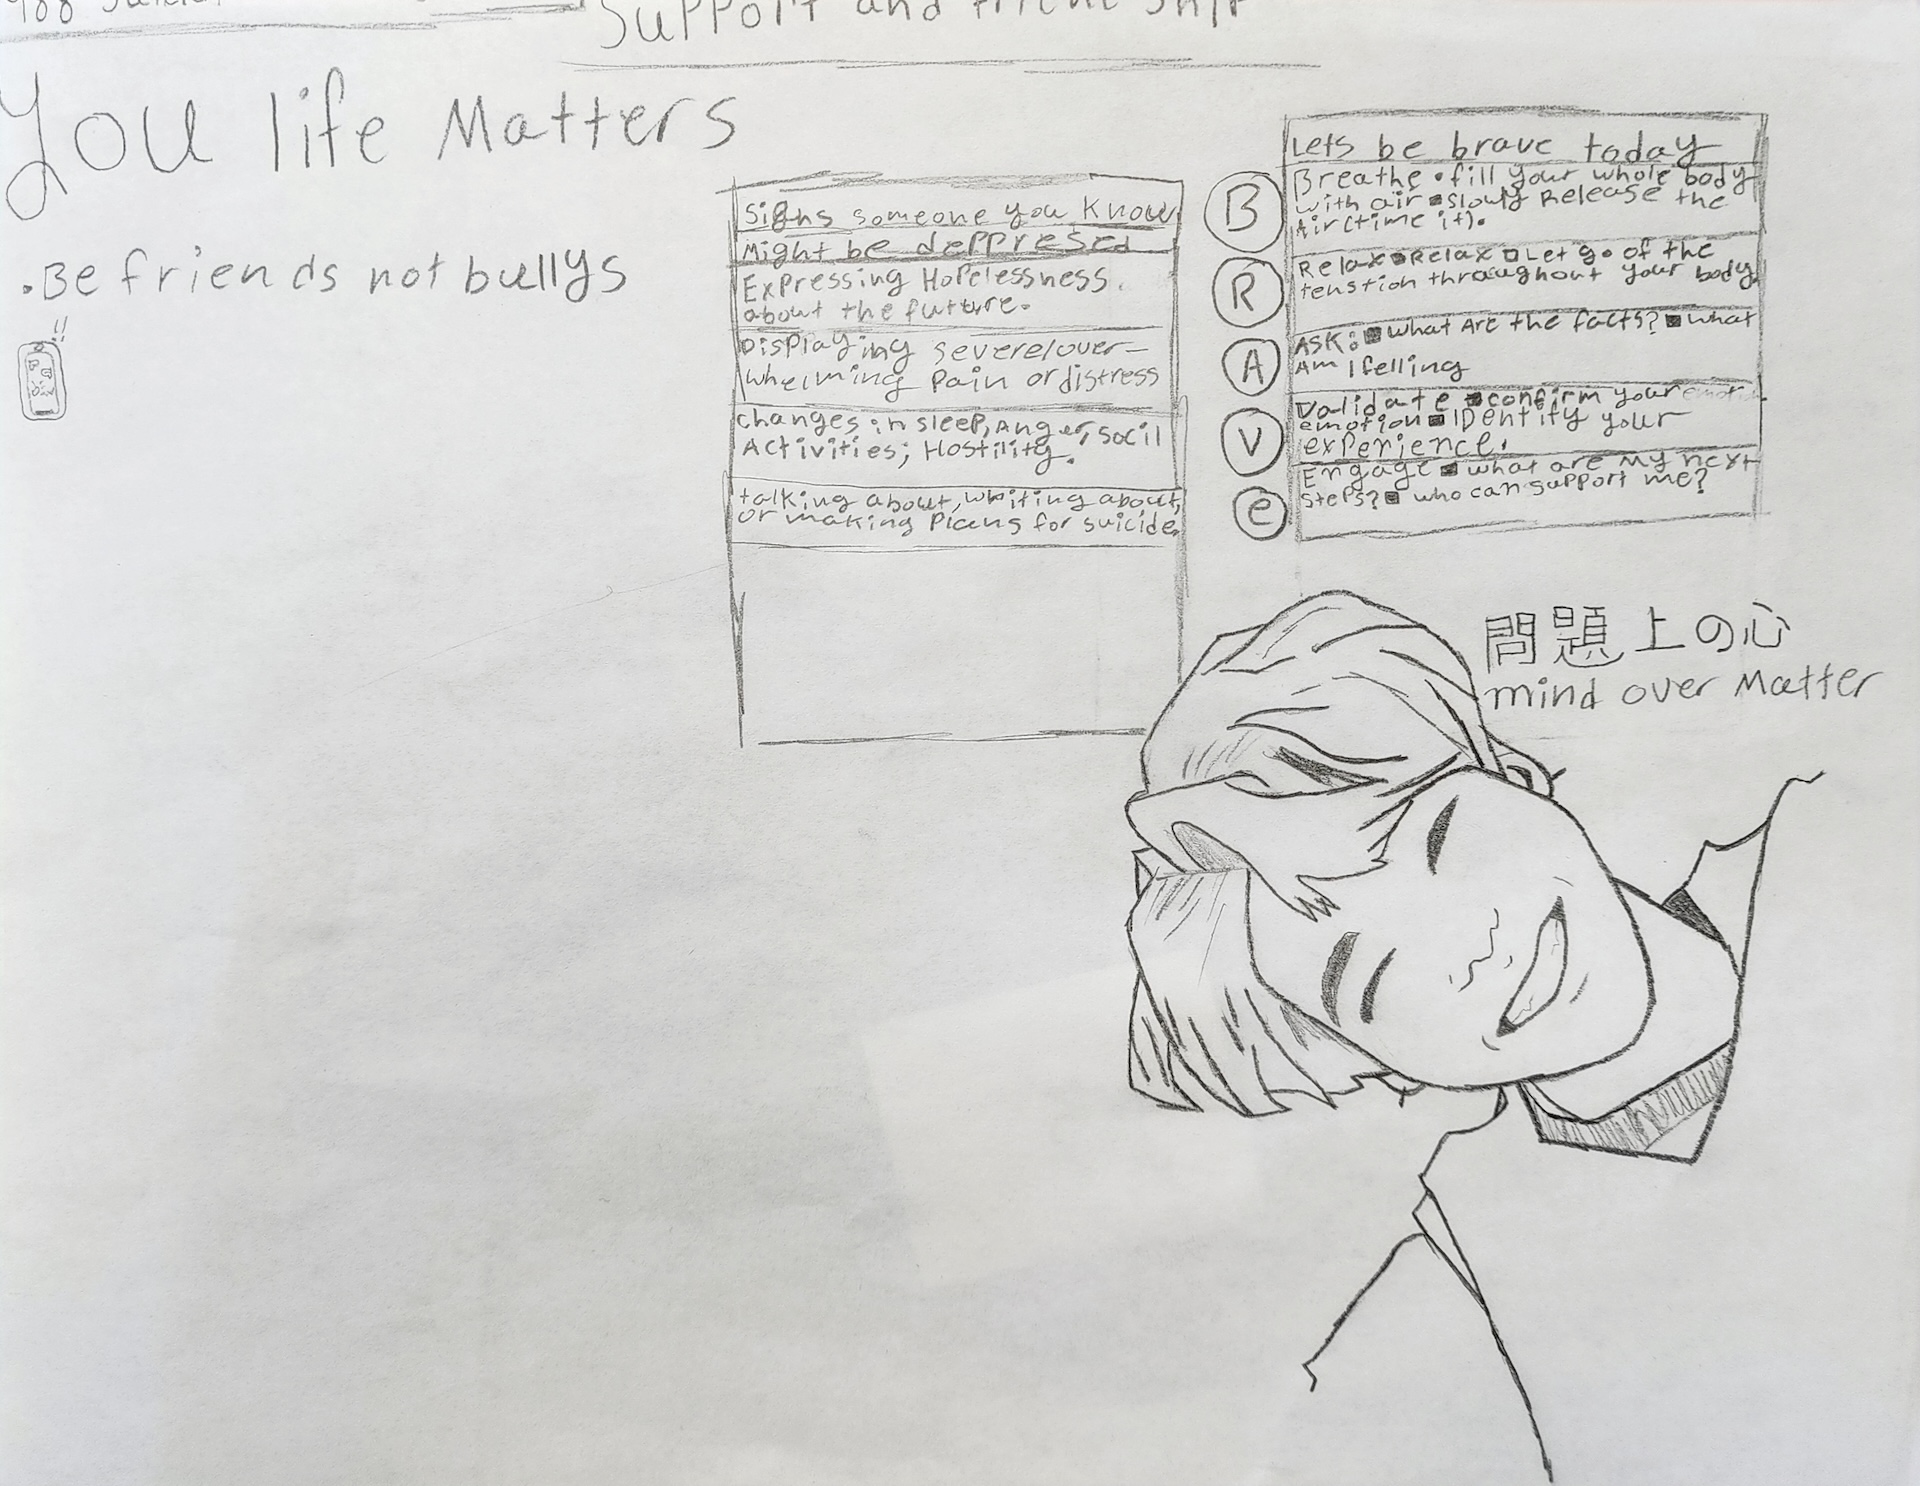 988 Suicide
Support and friendship
You life Matters
.Be friends not bullys
!!
Signs someone you know
Might be deppresed
Expressing Hopelessness.
about the futture.
Displaying severe/over-
whelming Pain or distress
changes in sleep, Anger, socil
Activities; Hostility.
talking about, whiting about,
or making Plans for suicide.
Lets be brave today
B
Breathe • fill your whole body
with air ▪ slowly Release the
Air (time it).
R
Relax ▪ Relax ▪ Let go of the
tenstion throughout your body.
A
ASK: ▪ What Are the facts? ▪ What
Am I felling
V
Validate ▪ confirm your
emotion ▪ IDentify your
experience.
e
Engage ▪ what are My next
steps? ▪ who can support me?
問題上の心
mind over Matter